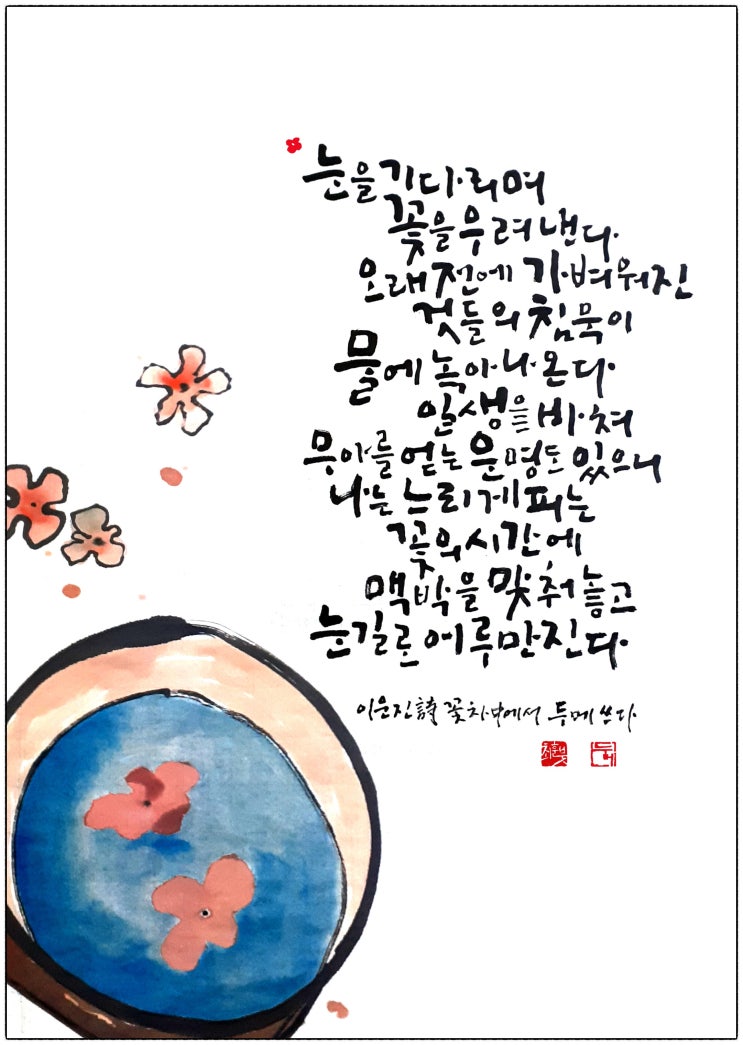 눈을 기다리며
꽃을 우려낸다.
오래전에 가벼워진
것들의 침묵이
물에 녹아나온다.
일생을 바쳐
무아를 얻는 운명도 있으니
나는 느리게 피는
꽃의 시간에
맥박을 맞춰 놓고
눈길로 어루만진다.
이운진 詩 꽃차 中에서 두메 쓰다.
두메